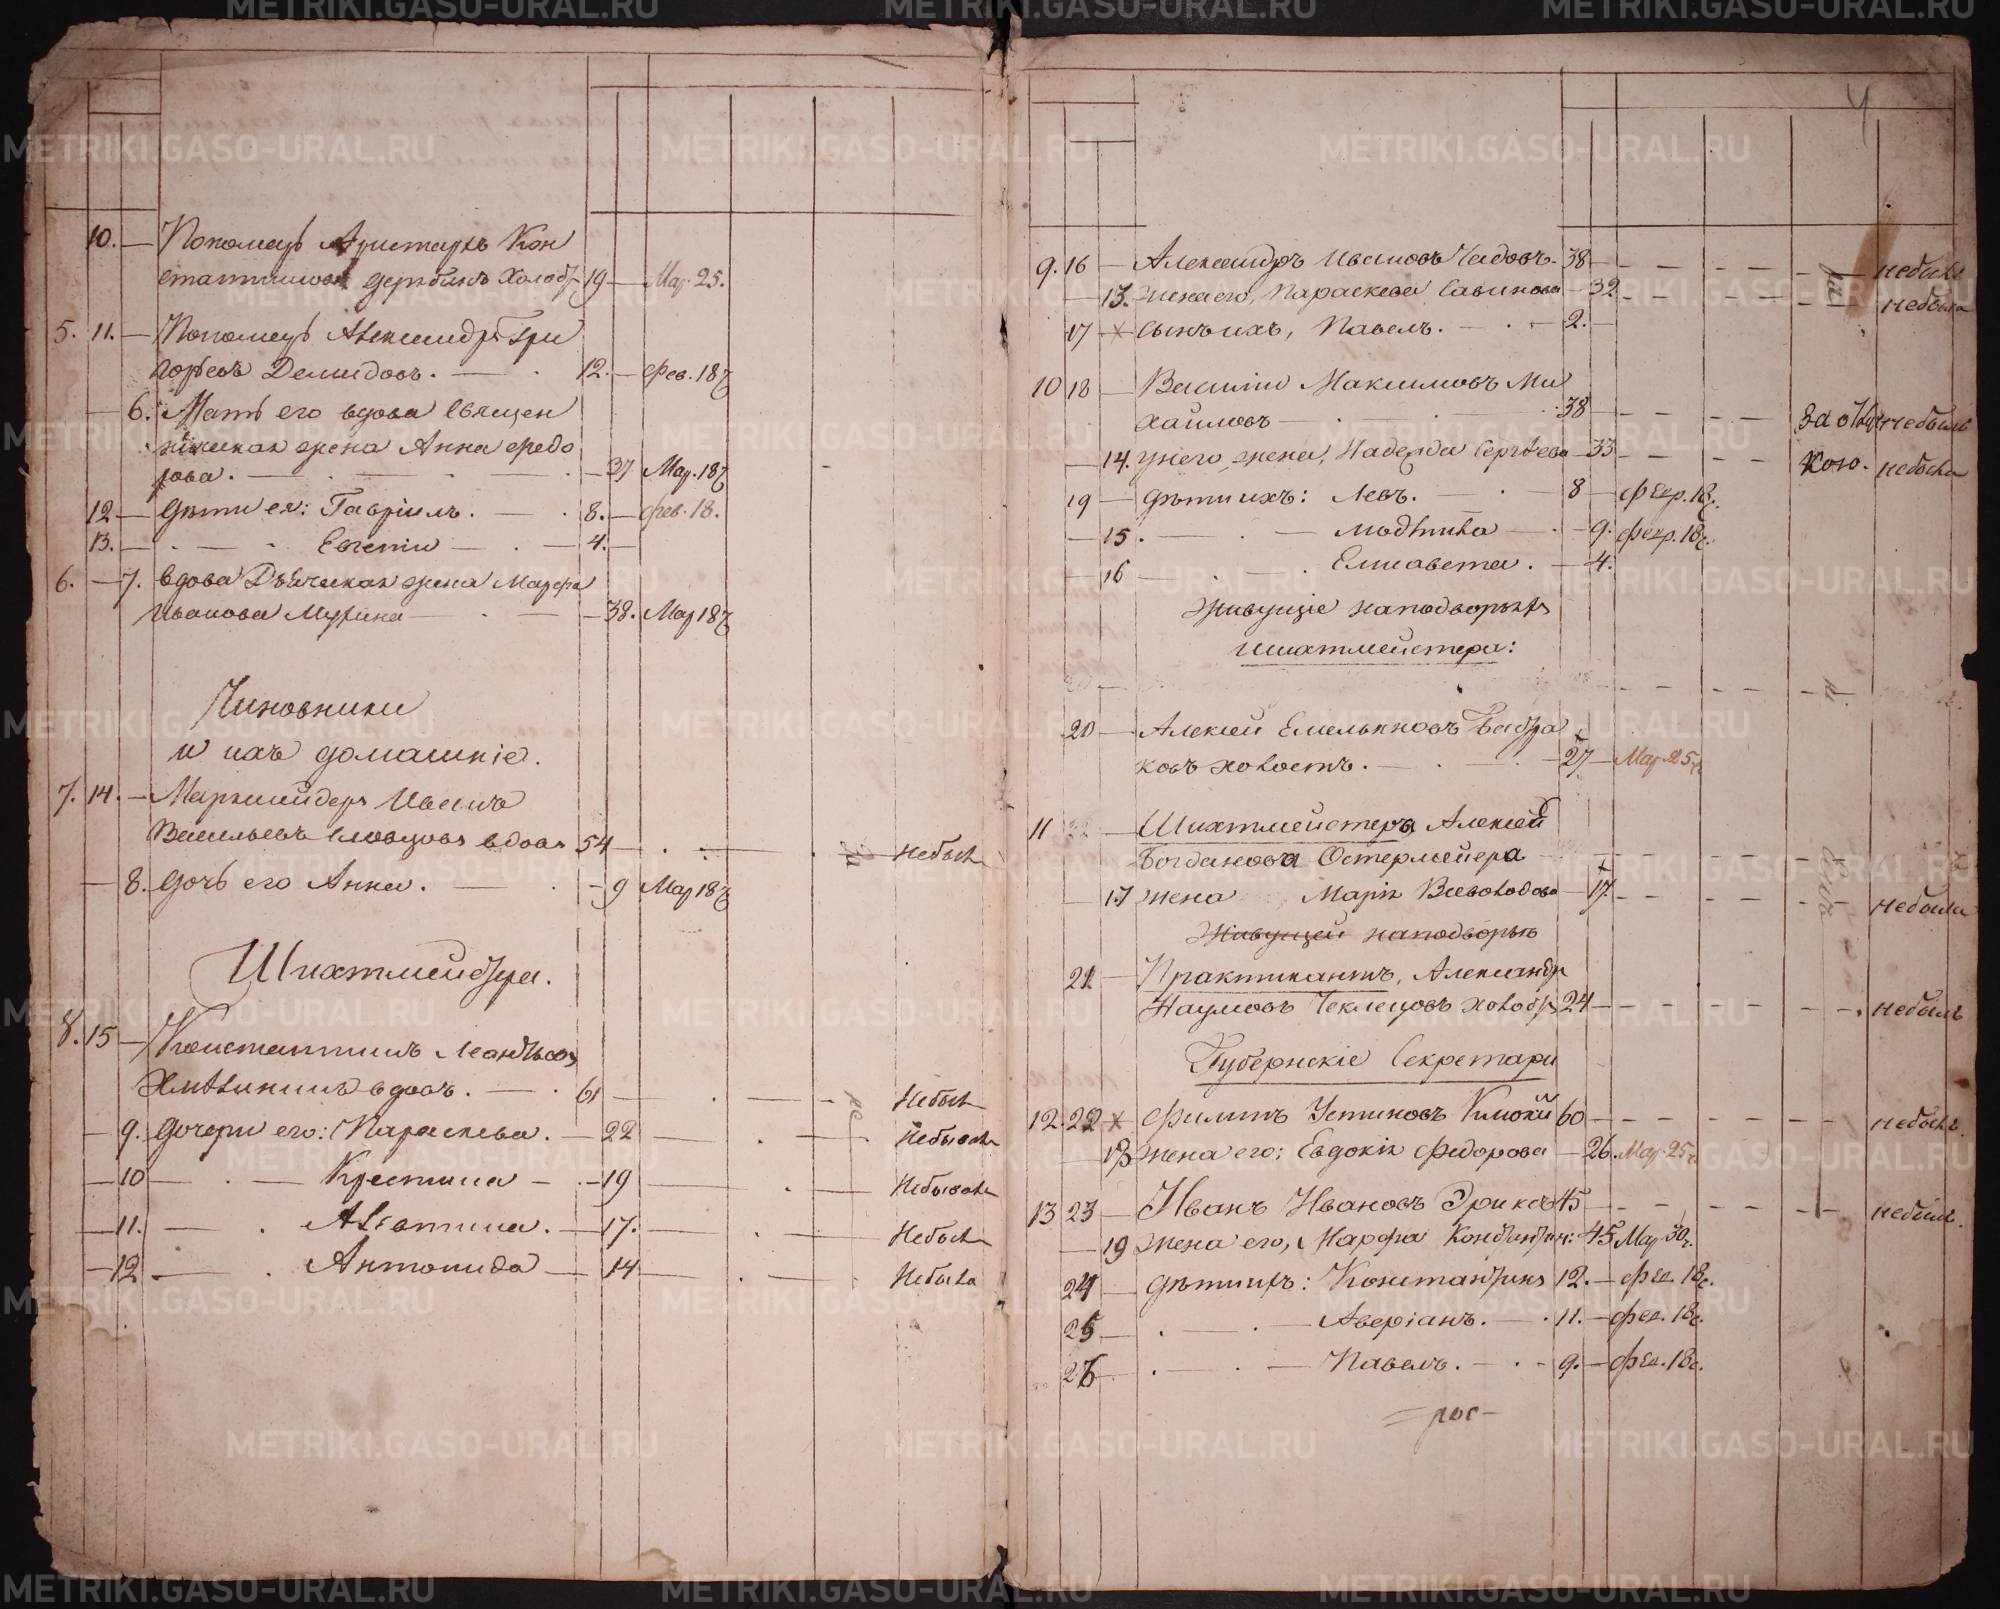 10. — Пономарь Аристархъ Кон
стантиновъ Дерябинъ Холост 19 — Мар. 25.
5. 11. — Пономарь Александръ Гри
горьевъ Демидовъ. — 12. — Фев. 18
— 6. Мать его вдова Священ
ническая жена Анна Федо
рова. — 37 Мар. 18
12 — Дѣти ея: Гавріилъ. — 8. — Фев. 18.
13. — Евгеній — 4. —
6. — 7. Вдова Дьяческая жена Марфа
Иванова — 38. Мар 18
Чиновники
и ихъ домашніе.
7. 14. — Маркшейдеръ Иванъ
Васильевъ Словцовъ вдовъ 54 — небылъ
— 8. Дочь его Анна. — 9 Мар 18
Шихтмейстера.
8. 15 — Константинъ Леонтьевъ
вдовъ. — 61 — Небылъ
— 9. Дочери его: Параскева. — 22 — Небыла
— 10 — Крестина — 19 — Небыла
— 11. — Алевтина. — 17. — Небыла
— 12 — Антонида — 14 — Небыла
9. 16 — Александръ Ивановъ Чадовъ. 38 — небылъ
— 13. жена его, Параскева Савинова — 32 — небыла
17 — × Сынъ ихъ, Павелъ. — 2. —
10 18 — Василій Максимовъ Ми
хайловъ — 38 — за от небылъ
— 14. у него жена, Надежда Сергѣева — 33 — кою. небыла
19 — Дѣти ихъ: Левъ. — 8 — Февр. 18
— 15. — — 9. Февр. 18
— 16 — Елисавета. — 4.
Живущіе на подворьяхъ
Шихтмейстера:
20 — Алексей Емельяновъ
ковъ холостъ. — 27 — Мар 25
11 — Шихтмейстера Алексей
Богданова Остермейера
— 17 жена Марія Всеволодова — 17. — небыла
Живущей на подворью
21 — Практикантъ, Александръ
Наумовъ Чеклецовъ холост 24 — небылъ
Губернскіе Секретари
12. 22 × Филипъ Устиновъ Клюкий 60 — небылъ.
— 18 жена его: Евдокія Федорова — 26. Мар. 25
13 23 — Иванъ Ивановъ Эриксъ 45 — небылъ.
— 19 жена его, Марфа Константин: 45 Мар 30
24 — Дѣти ихъ: Константинъ 12. — Фев. 18
25 — Аверіанъ. — 11. — Фев. 18
26 — Павелъ. — 9. — Фев. 18
METRIKI.GASO-URAL.RU